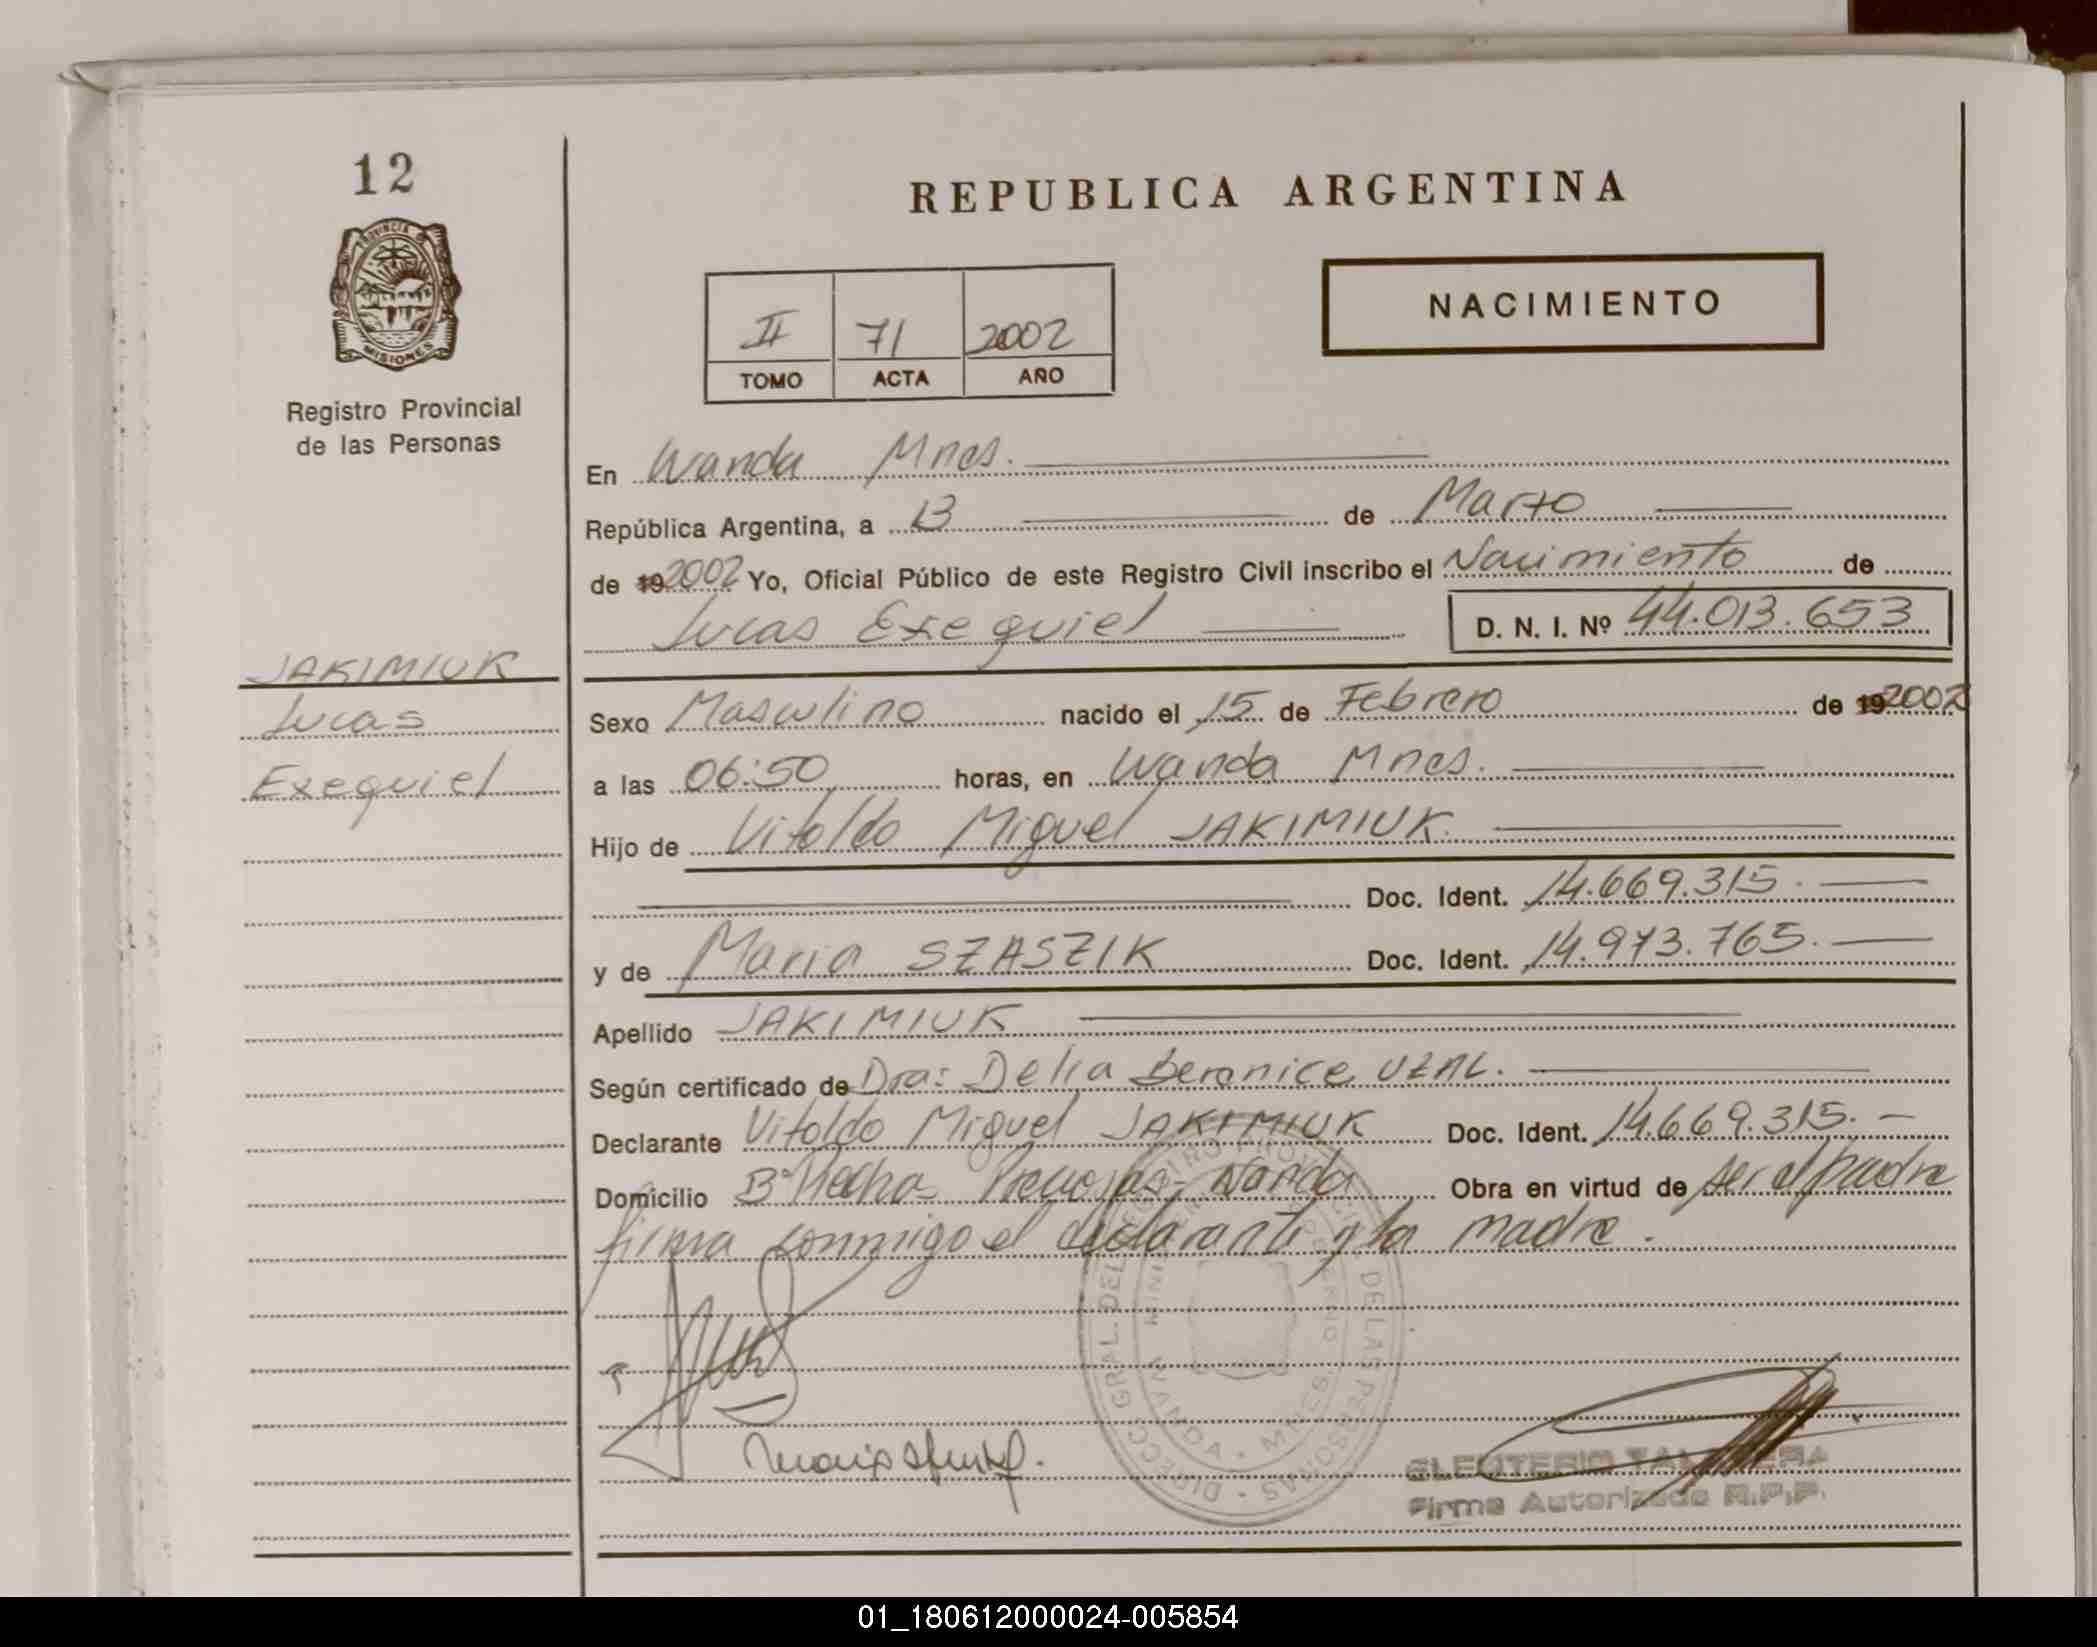 12
REPUBLICA ARGENTINA
PROVINCIA DE
MISIONES
Registro Provincial
de las Personas
NACIMIENTO
II 71 2002
TOMO ACTA AÑO
En Wanda Mnes.
República Argentina, a 13 de Marzo
de 192002 Yo, Oficial Público de este Registro Civil inscribo el Nacimiento de
Lucas Exequiel D. N. I. Nº 44.013.653
JAKIMIUK
Lucas
Exequiel
Sexo Masculino nacido el 15 de Febrero de 192002
a las 06:50 horas, en Wanda Mnes.
Hijo de Vitoldo Miguel JAKIMIUK.
Doc. Ident. 14.669.315.
y de Maria SZASZIK Doc. Ident. 14.973.765.
Apellido JAKIMIUK
Según certificado de Dra: Delia Berenice UZAL.
Declarante Vitoldo Miguel JAKIMIUK Doc. Ident. 14.669.315.
Domicilio Bº Wanda Obra en virtud de ser el padre
firma conmigo el declarante y la madre.
DIRECC. GRAL. DEL REGISTRO PROVINCIAL DE LAS PERSONAS
WANDA - MNES.
Firma Autorizada R.P.P.
01_180612000024-005854